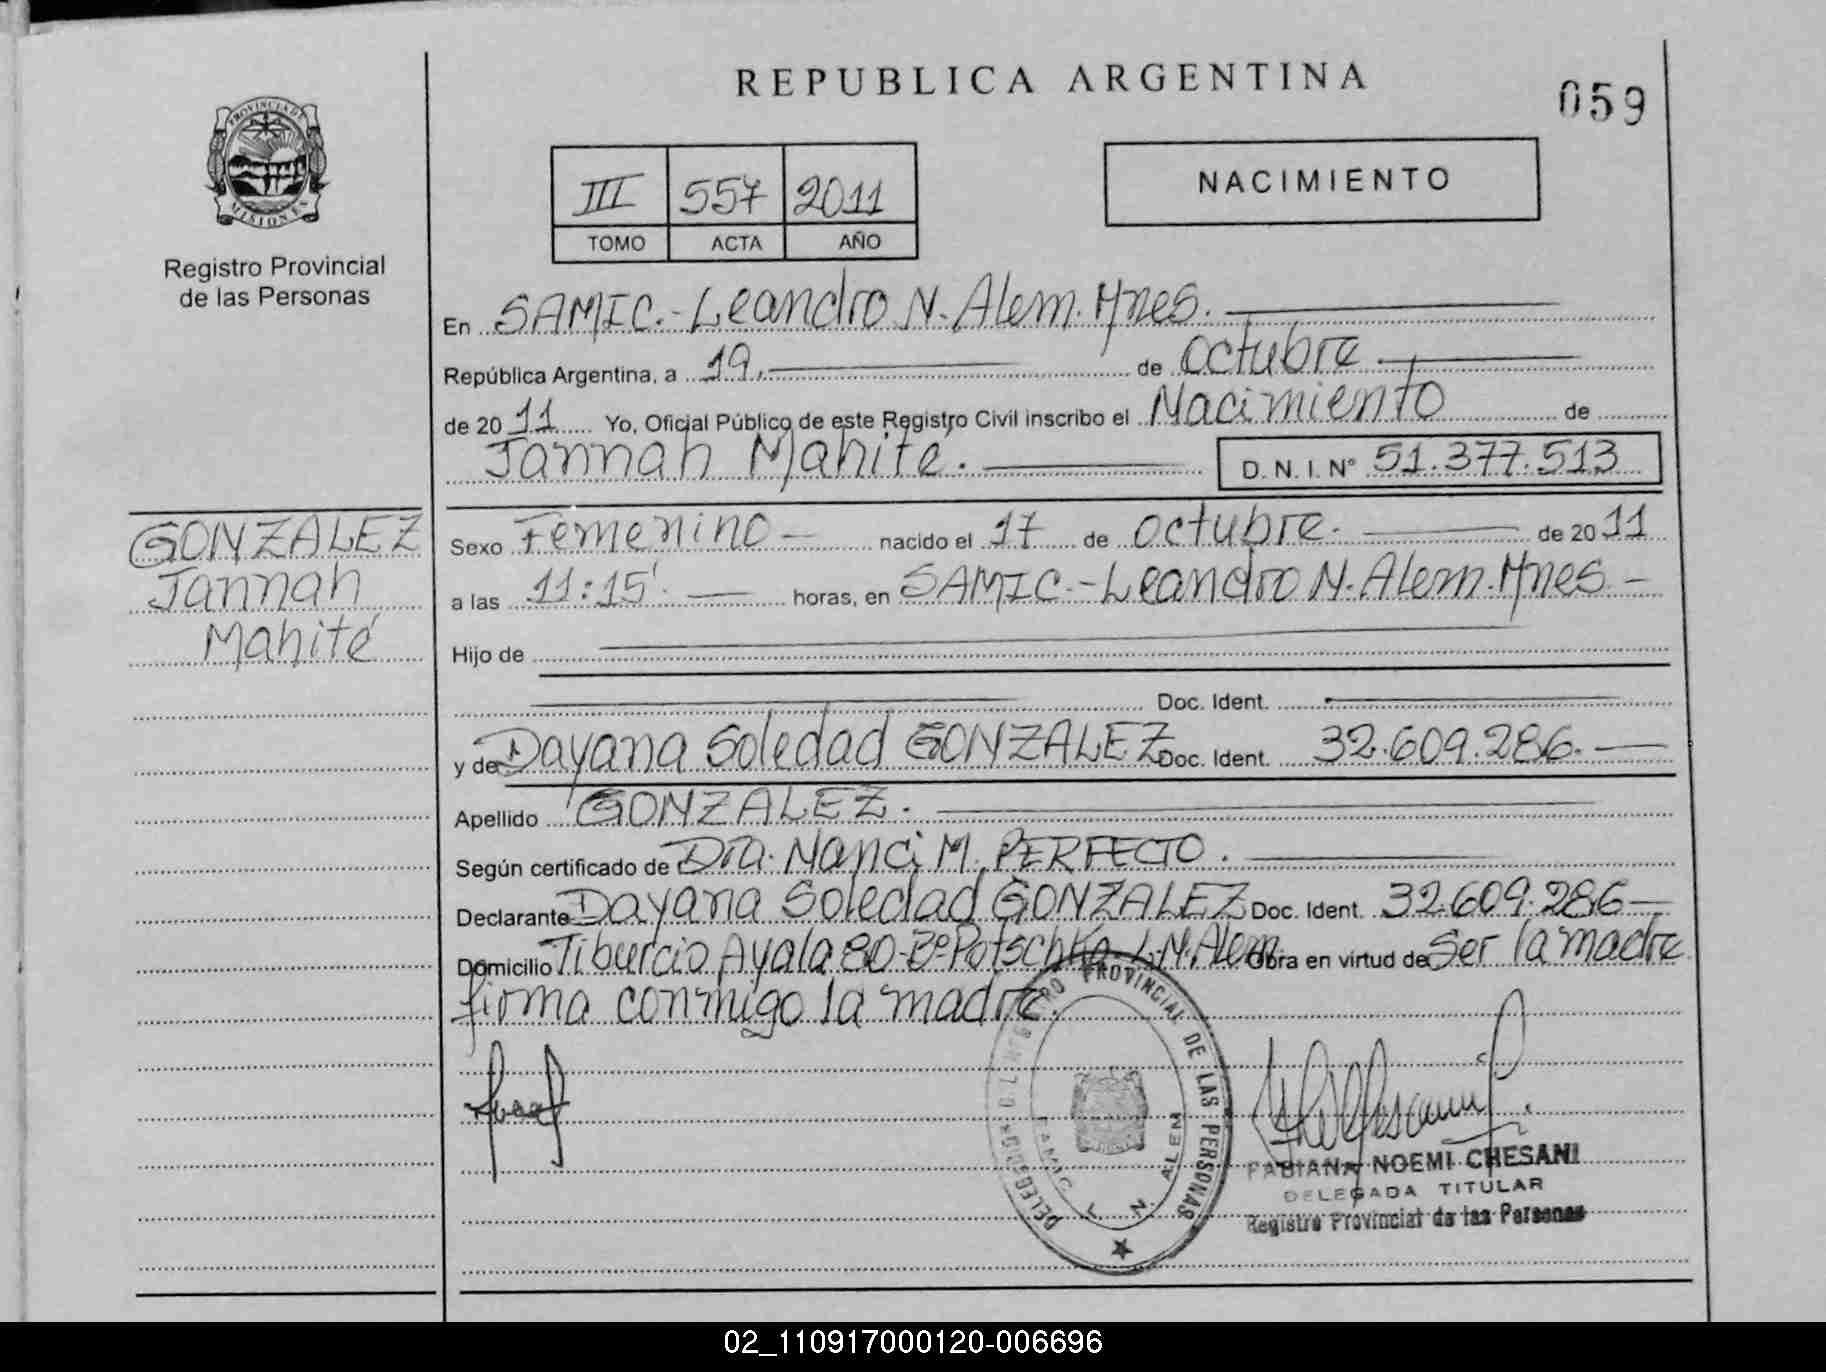 REPUBLICA ARGENTINA
059
PROVINCIA DE
MISIONES
Registro Provincial
de las Personas
III 557 2011
TOMO ACTA AÑO
NACIMIENTO
En SAMIC.-Leandro N. Alem. Mnes.
República Argentina, a 19. de octubre
de 2011 Yo, Oficial Público de este Registro Civil inscribo el Nacimiento de
Jannah Mahité. D. N. I. N° 51.377.513
GONZALEZ
Jannah
Mahité
Sexo Femenino nacido el 17 de octubre. de 2011
a las 11:15'. horas, en SAMIC.-Leandro N. Alem. Mnes
Hijo de
Doc. Ident.
y de Dayana Soledad GONZALEZ Doc. Ident. 32.609.286.
Apellido GONZALEZ.
Según certificado de Dra. Nanci M. PERFECTO.
Declarante Dayana Soledad GONZALEZ Doc. Ident. 32.609.286
Domicilio Tiburcio Ayala 80-B°Potschka-L.N.Alem. Obra en virtud de Ser la madre
firma conmigo la madre.
REGISTRO PROVINCIAL DE LAS PERSONAS
SAMIC L. N. ALEM
FABIANA NOEMI CHESANI
DELEGADA TITULAR
Registro Provincial de las Personas
02_110917000120-006696